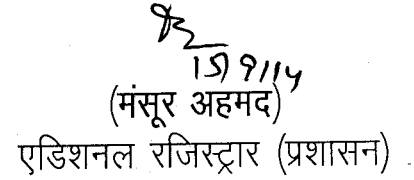 15/9/14
(मंसूर अहमद)
एडिशनल रजिस्ट्रार (प्रशासन)